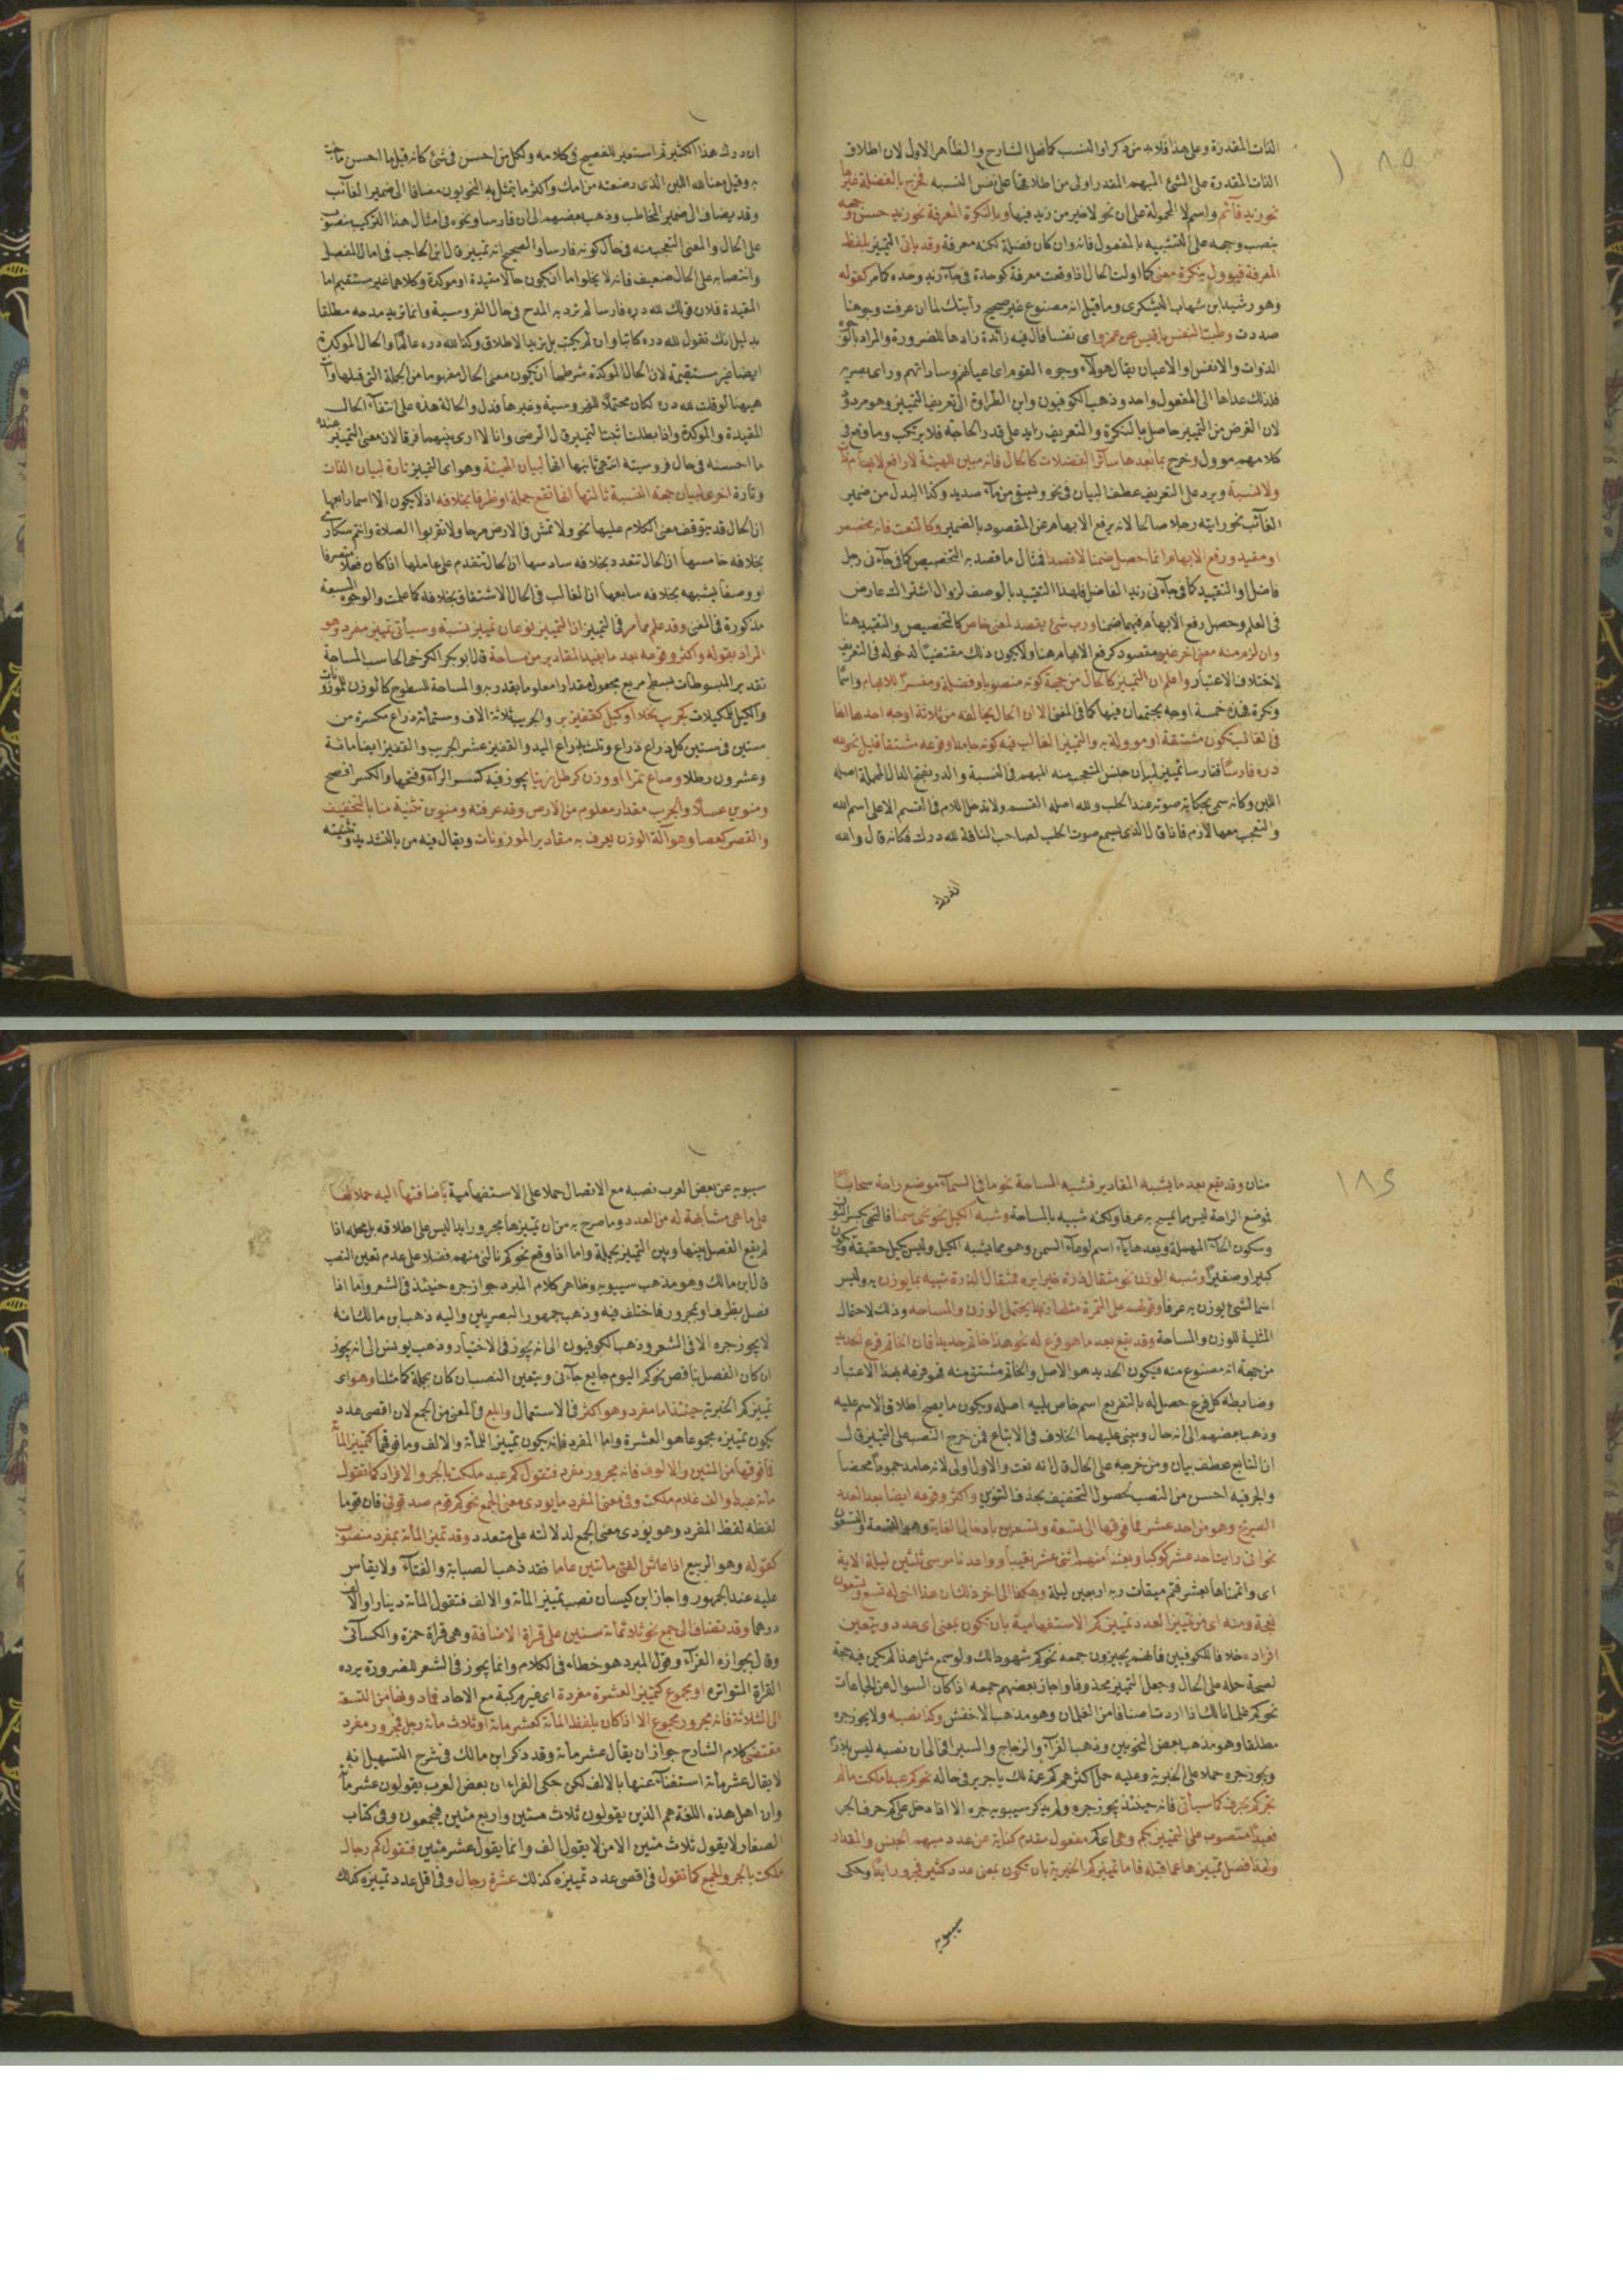 ١٨٥
الذات المقدرة وعلى هذا فلابد من ذكر او النسب كما فعل الشارح والظاهر الاول لان اطلاق
الذات المقدرة على الشئ المبهم المقدر اولى من اطلاقها على نفس النسبه فخرج بالفضلة غيرها
نحو زيد قائم واسم لا المحمولة على ان نحو لا خير من زيد فيها وبالنكرة المعرفة نحو زيد حسن وجهه
بنصب وجهه على التشبيه بالمفعول فانه وان كان فضلة لكنه معرفة وقد ياتى التمييز بلفظ
المعرفة فيوول بنكرة معنى كما اولت الحال اذا وقعت معرفة كوحدة فى جاء زيد وحده كما مر كقوله
وهو رشيد ابن شهاب اليشكرى وما قيل انه مصنوع غير صحيح رأيتك لما ان عرفت وجوهنا
صددت وطبت النفس يا قيس عن عمرو اى نفسا فال فيه زائدة زادها للضرورة والمراد بالوجوه
الذوات والانفس او الاعيان يقال هولاء وجوه القوم اى اعيانهم وساداتهم وراى بصريه
فلذلك عداها الى المفعول واحد وذهب الكوفيون وابن الطراوة الى تعريف التمييز وهو مردود
لان الغرض من التمييز حاصل بالنكرة والتعريف زايد على قدر الحاجة فلا يرتكب وما وقع فى
كلامهم موول وخرج بما بعدها سائر الفضلات كالحال فانه مبين للهيئة لا رافع لابهام ذات
ولا نسبة ويرد على التعريف عطف البيان فى نحو ويسقى من ماء صديد وكذا البدل من ضمير
الغائب نحو رايته رجلا صالحا لانه يرفع الابهام عن المقصود بالضمير وكالنعت فانه مخصص
او مقيد ورفع الابهام انما حصل ضمنا لا قصدا فمثال ما قصد به التخصيص كما فى جاءنى رجل
فاضل او التقييد كما فى جاءنى زيد الفاضل فلهذا التقييد بالوصف لزوال اشتراك عارض
فى العلم وحصل رفع الابهام فيهما ضمنا ورب شئ يقصد لمعنى خاص كالتخصيص والتقييد هنا
وان لزم منه معنى اخر غير مقصود كرفع الابهام هنا ولا يكون ذلك مقتضيا لدخوله فى التعريف
لاختلاف الاعتبار واعلم ان التمييز كالحال من جهة كونه منصوبا وفضلة ومفسرا للابهام واسما
ونكرة فهذه خمسة اوجه يجتمعان فيها كما فى المغنى الا ان الحال يخالفه من ثلاثة اوجه احدها انها
فى الغالب تكون مشتقة او موولة به والتمييز الغالب فيه كونه جامدا وقوعه مشتقا قليل نحو لله
دره فارسا ففارسا تمييز لبيان جنس المتعجب منه المبهم فى النسبة والدر بفتح الدال المهملة اصله
اللبن وكانه سمى بحكاية صوته عند الحلب ولله اصله القسم ولا تدخل اللام فى القسم الا على اسم الله
والتعجب معها لازم فاذا قال الذى يسمع صوت الحلب لصاحب الناقة لله درك فكانه قال والله
ان درك هذا الكثير ثم استعير للفصيح فى كلامه ولكل من احسن فى شئ كانه قيل ما احسن ما جئت
به وقيل معناه لله اللبن الذى رضعته من امك واكثر ما يتمثل به النحويون مضافا الى ضمير الغائب
وقد يضاف الى ضمير المخاطب وذهب بعضهم الى ان فارسا ونحوه فى امثال هذا التركيب منصوب
على الحال والمعنى التعجب منه فى حال كونه فارسا والصحيح انه تمييز قال ابن الحاجب فى امال المفصل
وانتصابه على الحال ضعيف فانه لا يخلو اما ان يكون حالا مقيدة او موكدة وكلاهما غير مستقيم اما
المقيدة فلان قولك لله دره فارسا لم ترد به المدح فى حال الفروسية وانما تريد مدحه مطلقا
بدليل انك تقول لله دره كاتبا وان لم يكتب بل تريد الاطلاق وكذا لله دره عالما والحال الموكدة
ايضا غير مستقيمة لان الحال الموكدة شرطها ان يكون معنى الحال مفهوما من الجملة التى قبلها وانت
هيهنا لو قلت لله دره لكان محتملا للفروسية وغيرها فدل والحالة هذه على انتفاء الحال
المقيدة والموكدة واذا بطلتا ثبت التمييز قال الرضى وانا لا ارى بينهما فرقا لان معنى التمييز عنده
ما احسنه فى حال فروسيته انتهى ثانيها انها لبيان الهيئة وهو اى التمييز تارة لبيان الذات
وتارة اخرى لبيان جهة النسبة ثالثها انها تقع جملة او ظرفا بخلافه اذ لا يكون الا اسما رابعها
ان الحال قد يتوقف معنى الكلام عليها نحو ولا تمش فى الارض مرحا ولا تقربوا الصلاة وانتم سكارى
بخلافه خامسها ان الحال تتعدد بخلافه سادسها ان الحال تتقدم على عاملها اذا كان فعلا متصرفا
او وصفا يشبهه بخلافه سابعها ان الغالب فى الحال الاشتقاق بخلافه كما علمت والوجوه السبعة
مذكورة فى المغنى وقد علم مما مر فى التمييز ان التمييز نوعان تمييز نسبة وسيأتى تمييز مفرد وهو
المراد بقوله واكثر وقوعه بعد ما يفيد المقادير من مساحة قال ابو بكر الكرخى الحاسب المساحة
تقدير المبسوطات ببسط مربع يجعل مقدارا معلوما يقدر به والمساحة للسطوح كالوزن للموزونات
والكيل للمكيلات كجريب نخلا او كيل كقفيز بر والجريب ثلاثة الاف وستمائة ذراع مكسرة من
ستين فى ستين كل ذراع ذراع وثلث بذراع اليد والقفيز عشر الجريب والقفيز ايضا مائة
وعشرون رطلا وصاع تمرا او وزن كرطل زيتا يجوز فيه كسر الراء وفتحها والكسر افصح
ومنوين عسلا والجريب مقدار معلوم من الارض وقد عرفته ومنوين تثنية منا بالتخفيف
والقصر كعصا وهو آلة الوزن يعرف به مقادير الموزونات ويقال فيه من بالتشديد وتثنيته
١٨٦
منان وقد يقع بعد ما يشبه المقادير فشبه المساحة نحو ما فى السماء موضع راحة سحابا
فموضع الراحة ليس مما يمسح به عرفا ولكنه شبيه بالمساحة وشبه الكيل نحو نحى سمنا فالنحى بكسر النون
وسكون الحاء المهملة وبعدها ياء اسم لوعاء السمن وهو مما يشبه الكيل وليس بكيل حقيقة ويكون
كبيرا وصغيرا وشبه الوزن نحو مثقال ذرة خيرا يره فمثقال الذرة شبيه بما يوزن به وليس
اسما لشئ يوزن به عرفا وقولهم على التمرة مثلها زبدا يحتمل الوزن والمساحه وذلك لاحتمال
المثلية للوزن والمساحة وقد يقع بعد ما هو فرع له نحو هذا خاتم حديدا فان الخاتم فرع الحديد
من جهة انه مصنوع منه فيكون الحديد هو الاصل والخاتم مشتق منه فهو فرعه بهذا الاعتبار
وضابطه كل فرع حصل له بالتفريع اسم خاص يليه اصله ويكون ما يصح اطلاق الاسم عليه
وذهب بعضهم الى انه حال وينبنى عليهما الخلاف فى الاتباع فمن خرج النصب على التمييز قال
ان التابع عطف بيان ومن خرجه على الحال قال انه نعت والاول اولى لانه جامد جمودا محضا
والجر فيه احسن من النصب لحصول التخفيف بحذف التنوين واكثر وقوعه ايضا بعد العدد
الصريح وهو من احد عشر فما فوقها الى تسعة وتسعين بادخال الغاية وهو التسعة والتسعون
نحو انى رايت احد عشر كوكبا وبعثنا منهم اثنى عشر نقيبا وواعدنا موسى ثلثين ليلة الاية
اى واتممناها بعشر فتم ميقات ربه اربعين ليلة وهكذا الى اخر ذلك ان هذا اخى له تسع وتسعون
نعجة ومنه اى من تمييز العدد تمييز كم الاستفهامية بان تكون بمعنى اى عدد ويتعين
افراده خلافا للكوفيين فانهم يجيزون جمعه نحو كم شهودا لك ولو سمع مثل هذا لم يكن فيه حجة
لصحة حمله على الحال وجعل التمييز محذوفا واجاز بعضهم جمعه اذا كان السوال عن الجماعات
نحو كم غلمانا لك اذا اردت اصنافا من الغلمان وهو مذهب الاخفش وكذا نصبه ولا يجوز جره
مطلقا وهو مذهب بعض النحويين وذهب الفراء والزجاج والسيرافى الى ان نصبه ليس بلازم
ويجوز جره حملا على الخبرية وعليه حمل اكثرهم كم عمة لك يا جرير فى حاله نحو كم عبدا ملكت ما لم
تجر كم بحرف كما سيأتى فانه حينئذ يجوز جره ولم يذكر سيبويه جره الا اذا دخل على كم حرف الجر
فعبدا منصوب على التمييز بكم وهى اى كم مفعول مقدم كناية عن عدد مبهم الجنس والمقدار
ولهذا فصل تمييزها عما قبله فاما تمييز كم الخبرية بان تكون بمعنى عدد كثير فمجرور ابدا وحكى
سيبويه
سيبويه عن بعض العرب نصبه مع الاتصال حملا على الاستفهامية باضافتها اليه حملا لها
على ما هى مشابهة له من العدد وما صرح به من ان تمييزها مجرور ابدا ليس على اطلاقه بل محله اذا
لم يقع الفصل بينها وبين التمييز بجملة واما اذا وقع نحو كم نالنى منهم فضلا على عدم تعين النصب
قال ابن مالك وهو مذهب سيبويه وظاهر كلام المبرد جواز جره حينئذ فى الشعر واما اذا
فصل بظرف او مجرور فاختلف فيه وذهب جمهور البصريين واليه ذهب ابن مالك انه
لا يجوز جره الا فى الشعر وذهب الكوفيون الى انه يجوز فى الاختيار وذهب يونس الى انه يجوز
ان كان الفصل بناقص نحو كم اليوم جايع جاءنى ويتعين النصب ان كان بجملة كما مثلنا وهو اى
تمييز كم الخبرية حينئذ اما مفرد وهو اكثر فى الاستعمال وابلغ فى المعنى من الجمع لان اقصى عدد
يكون تمييزه مجموعا هو العشرة واما المفرد فانه يكون تمييزا للمائة والالف وما فوقها كتمييز المائة
فما فوقها من المئين والالوف فانه مجرور مفرد فتقول كم عبد ملكت بالجر والافراد كما تقول
مائة عبد والف غلام ملكت وفى معنى المفرد ما يودى معنى الجمع نحو كم قوم صدقونى فان قوما
لفظه لفظ المفرد وهو يؤدى معنى الجمع لدلالته على متعدد وقد تميز المائة بمفرد منصوب
كقوله وهو الربيع اذا عاش الفتى مائتين عاما فقد ذهب اللذاذة والفتاء ولا يقاس
عليه عند الجمهور واجاز ابن كيسان نصب تمييز المائة والالف فتقول المائة دينارا والالف
درهما وقد تضاف الى جمع نحو ثلاثمائة سنين على قراة الاضافة وهى قراة حمزة والكسائى
وقال بجوازه الفراء وقول المبرد هو خطاء فى الكلام وانما يجوز فى الشعر للضرورة يرده
القراة المتواتره او مجموع كتمييز العشرة مفردة اى غير مركبة مع الاحاد فما دونها من التسعة
الى الثلاثة فانه مجرور مجموع الا اذا كان بلفظ المائة كعشر مائة او ثلاث مائة رجل فمجرور مفرد
مقتضى كلام الشارح جواز ان يقال عشر مائة وقد ذكر ابن مالك فى شرح التسهيل انه
لا يقال عشر مائة استغناء عنها بالالف لكن حكى الفراء ان بعض العرب يقولون عشر مائة
وان اهل هذه اللغة هم الذين يقولون ثلاث مئين واربع مئين فيجمعون وفى كتاب
الصفار لا يقول ثلاث مئين الا من لا يقول الف وانما يقول عشر مئين فتقول كم رجال
ملكت بالجر والجمع كما تقول فى اقصى عدد تمييزه كذلك عشرة رجال وفى اقل عدد تمييزه كذلك